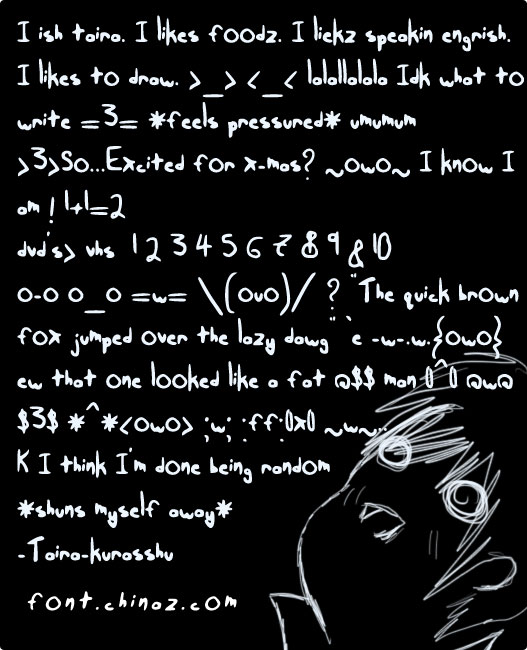 I ish taira. I likes foodz. I liekz speakin engrish.
I likes to draw. >_> <_< lalallalala Idk what to
write =3= *feels pressured* umumum
>3>So...Excited for x-mas? ~OwO~ I know I
am ! 1+1=2
dvd's> vhs 1 2 3 4 5 6 7 8 9 & 10
o-o o_o =w= \(ouo)/ ? "The quick brown
fox jumped over the lazy dawg" `e -w-.w.{OwO}
ew that one looked like a fat @$$ man 0^0 @w@
$3$ *^*<OwO> ;w; :ff:0x0 ~w~..
K I think I'm done being random
*shuns myself away*
-Taira-kurosshu
font.chinaz.com